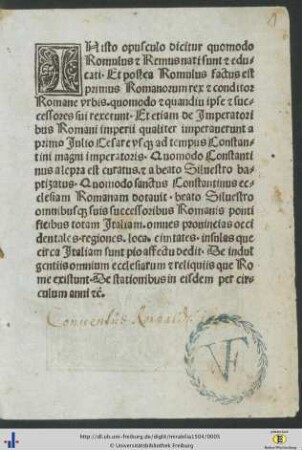 IN isto opusculo dicitur quomodo
Romulus ⁊ Remus nati sunt ⁊ edu-
cati. Et postea Romulus factus est
primus Romanorum rex ⁊ conditor
Romane vrbis. quomodo ⁊ quandiu ipse ⁊ suc-
cessores sui rexerunt. Et etiam de Imperatori
bus Romani imperii qualiter imperauerunt a
primo Julio Cesare vsqȝ ad tempus Constan-
tini magni imperatoris. Quomodo Constanti
nus a lepra est curatus. ⁊ a beato Siluestro ba-
ptizatus. Quomodo sanctus Constantinus ec-
clesiam Romanam dotauit. beato Siluestro
omnibusqȝ suis successoribus Romanis ponti
ficibus totam Italiam. omnes prouincias occi
dentales. regiones. loca. ciuitates. insulas que
circa Italiam sunt pio affectu dedit. De indul
gentiis omnium ecclesiarum ⁊ reliquiis que Ro
me existunt. De stationibus in eisdem per cir-
culum anni ⁊c̄.
Conuentus
VF
http://dl.ub.uni-freiburg.de/diglit/mirabilia1504/0005
© Universitätsbibliothek Freiburg